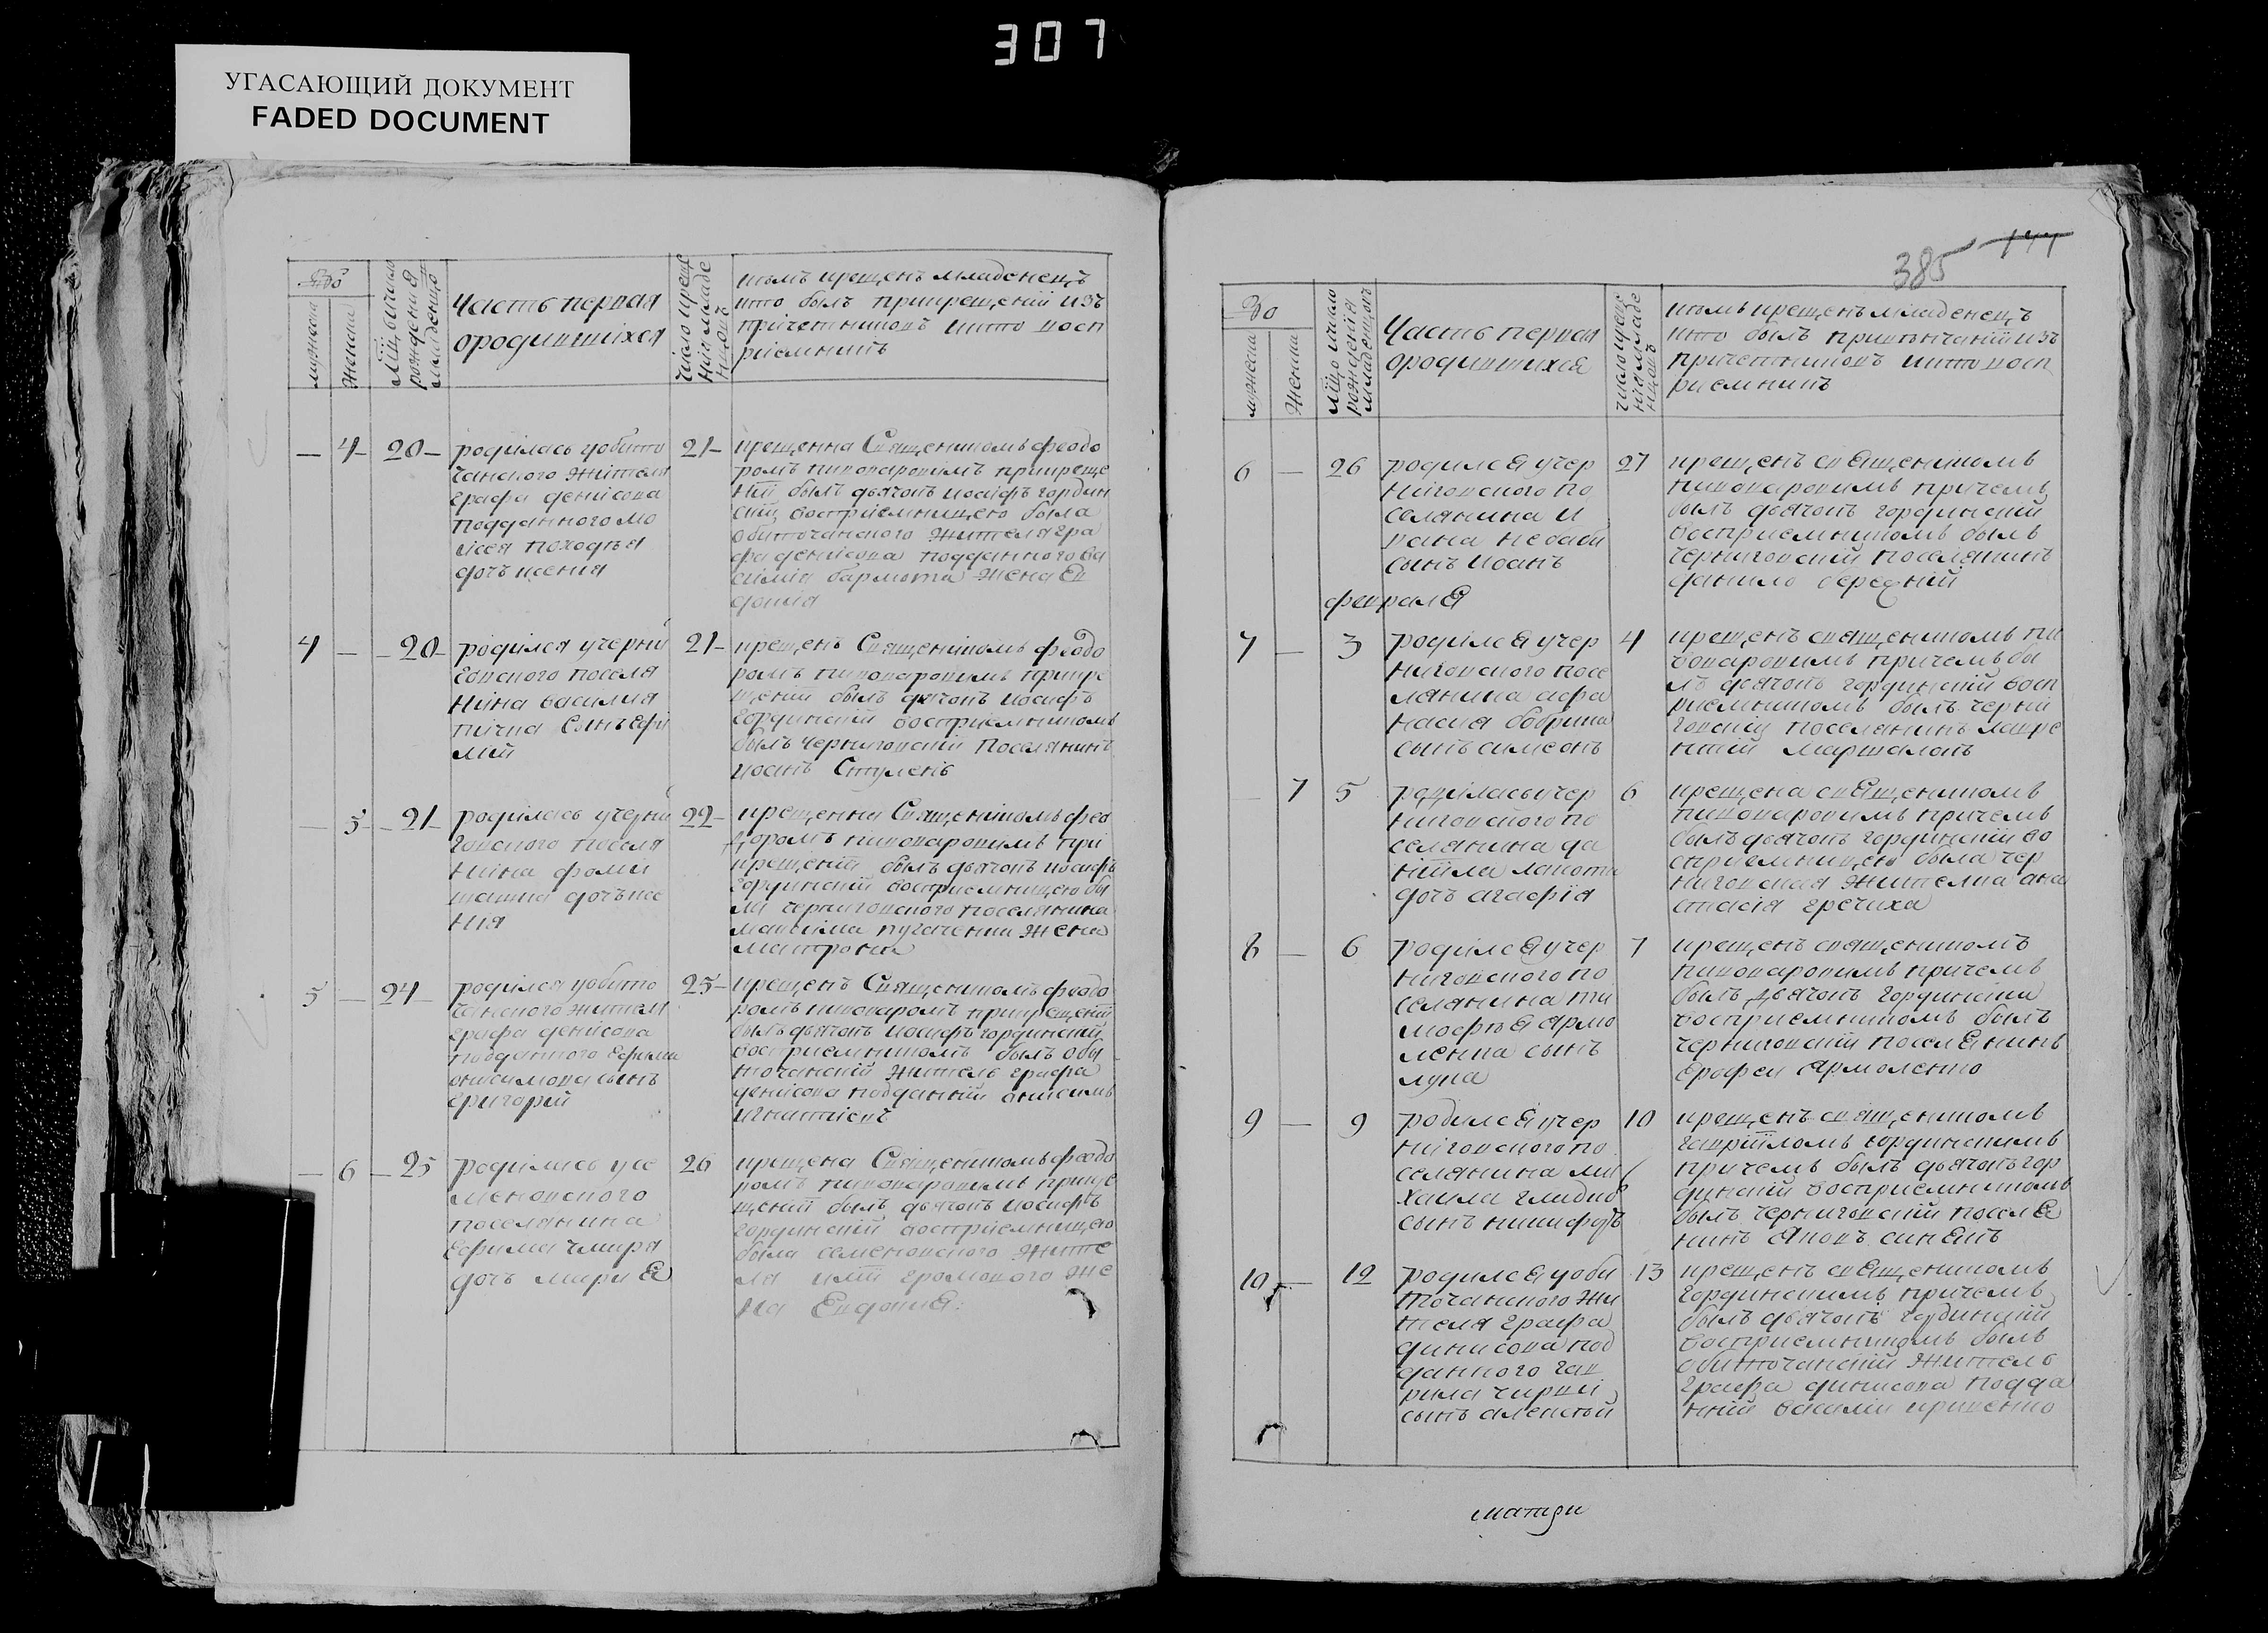 307
УГАСАЮЩИЙ ДОКУМЕНТ
FADED DOCUMENT
мужеска
женска
рождения
младенцо
Часть первая
ородившихся
число креще
ния младе
нцовъ
кѣмъ крещенъ младенецъ
кто былъ прикрещеніи изъ
причетниковъ икто восп
риемникъ
4 20
родилась уобито
чанского жителя
графа денисова
подданного мо
дочь ксения
21
крещенна Священникомъ феодо
ромъ пивоваровимъ прикреще
нiи былъ дьячокъ иосифъ гордин
скiй восприемницею была
обиточанского жителя гра
фа денисова подданного ва
жена Ев
докия
4 20
родился учерни
говского поселя
нина василия
сынъ ефи
мий
21
крещенъ Священникомъ феодо
ромъ пивоваровимъ прикре
щениi былъ дьячокъ иосифъ
гординскiй восприемникомъ
былъ черниговскiй поселянинъ
иоанъ Ступень
5 21
родилась учерни
говского поселя
нина фоми
дочь ксе
ния
22
крещенна Священникомъ фео
доромъ пивоваровимъ при
крещенiи былъ дьячокъ иосифъ
гординскiй восприемницею бы
ла черниговского поселянина
максима пугаченка жена
матрона
5 24
родился уобито
чанского жителя
графа денисова
подданного ефима
онисимова сынъ
григорiй
25
крещенъ Священникомъ феодо
ромъ пивоваромъ прикрещенiи
былъ дьячокъ иосифъ гординскiй
восприемникомъ былъ оби
точанскiй житель графа
денисова подданнiй анисимъ
игнатiевъ
6 25
родилась усе
меновского
поселянина
Ефима чмиря
дочь мария
26
крещена Священникомъ феодо
ромъ пивоваровимъ прикре
щенiи былъ дьячокъ иосифъ
гординскiй восприемницею
была семеновского жите
ля илiи громового же
на Евдокия
385
144
мужеска
женска
рождения
младенцовъ
Часть первая
ородившихся
кѣмъ крещенъ младенецъ
причетниковъ икто восп
риемникъ
6 26
родился учер
ниговского по
селянина и
вана небаби
сынъ иоанъ
27
крещенъ священникомъ
пивоваровимъ причемъ
былъ дьячокъ гординскiй
восприемникомъ былъ
черниговскiй поселянинъ
данило середнiй
февраля
7 3
родился учер
ниговского посе
лянина афа
насия бобрика
сынъ симеонъ
4
крещенъ священникомъ пи
воваровимъ причемъ бы
лъ дьячокъ гординскiй восп
риемникомъ былъ черни
говскiй поселянинъ лавре
нтiй маршалокъ
7 5
родилась учер
ниговского по
селянина да
нiила
дочь агафiя
6
крещена священникомъ
пивоваровимъ причемъ
былъ дьячокъ гординскiй во
сприемницею была чер
ниговская жителка ана
стасiя гречиха
8 6
родился учер
ниговского по
селянина ти
мофѣя ярмо
ленка сынъ
лука
7
крещенъ священникомъ
пивоваровимъ причемъ
былъ дьячокъ гординскiй
восприемникомъ былъ
черниговскiй поселянинъ
ерофей ярмоленко
9 9
родился учер
ниговского по
селянина ми
хаила гладко
сынъ никифоръ
10
крещенъ священникомъ
гаврiиломъ гординскимъ
причемъ былъ дьячокъ гор
динскiй восприемникомъ
былъ черниговскiй поселя
нинъ яковъ синякъ
10 12
родился уоби
точанского жи
теля графа
динисова под
данного гав
рила чирки
сынъ алексѣй
13
крещенъ священникомъ
гординскимъ причемъ
былъ дьячокъ гординскiй
восприемникомъ былъ
обиточанскiй житель
графа динисова подда
ннiй василiй ищенко